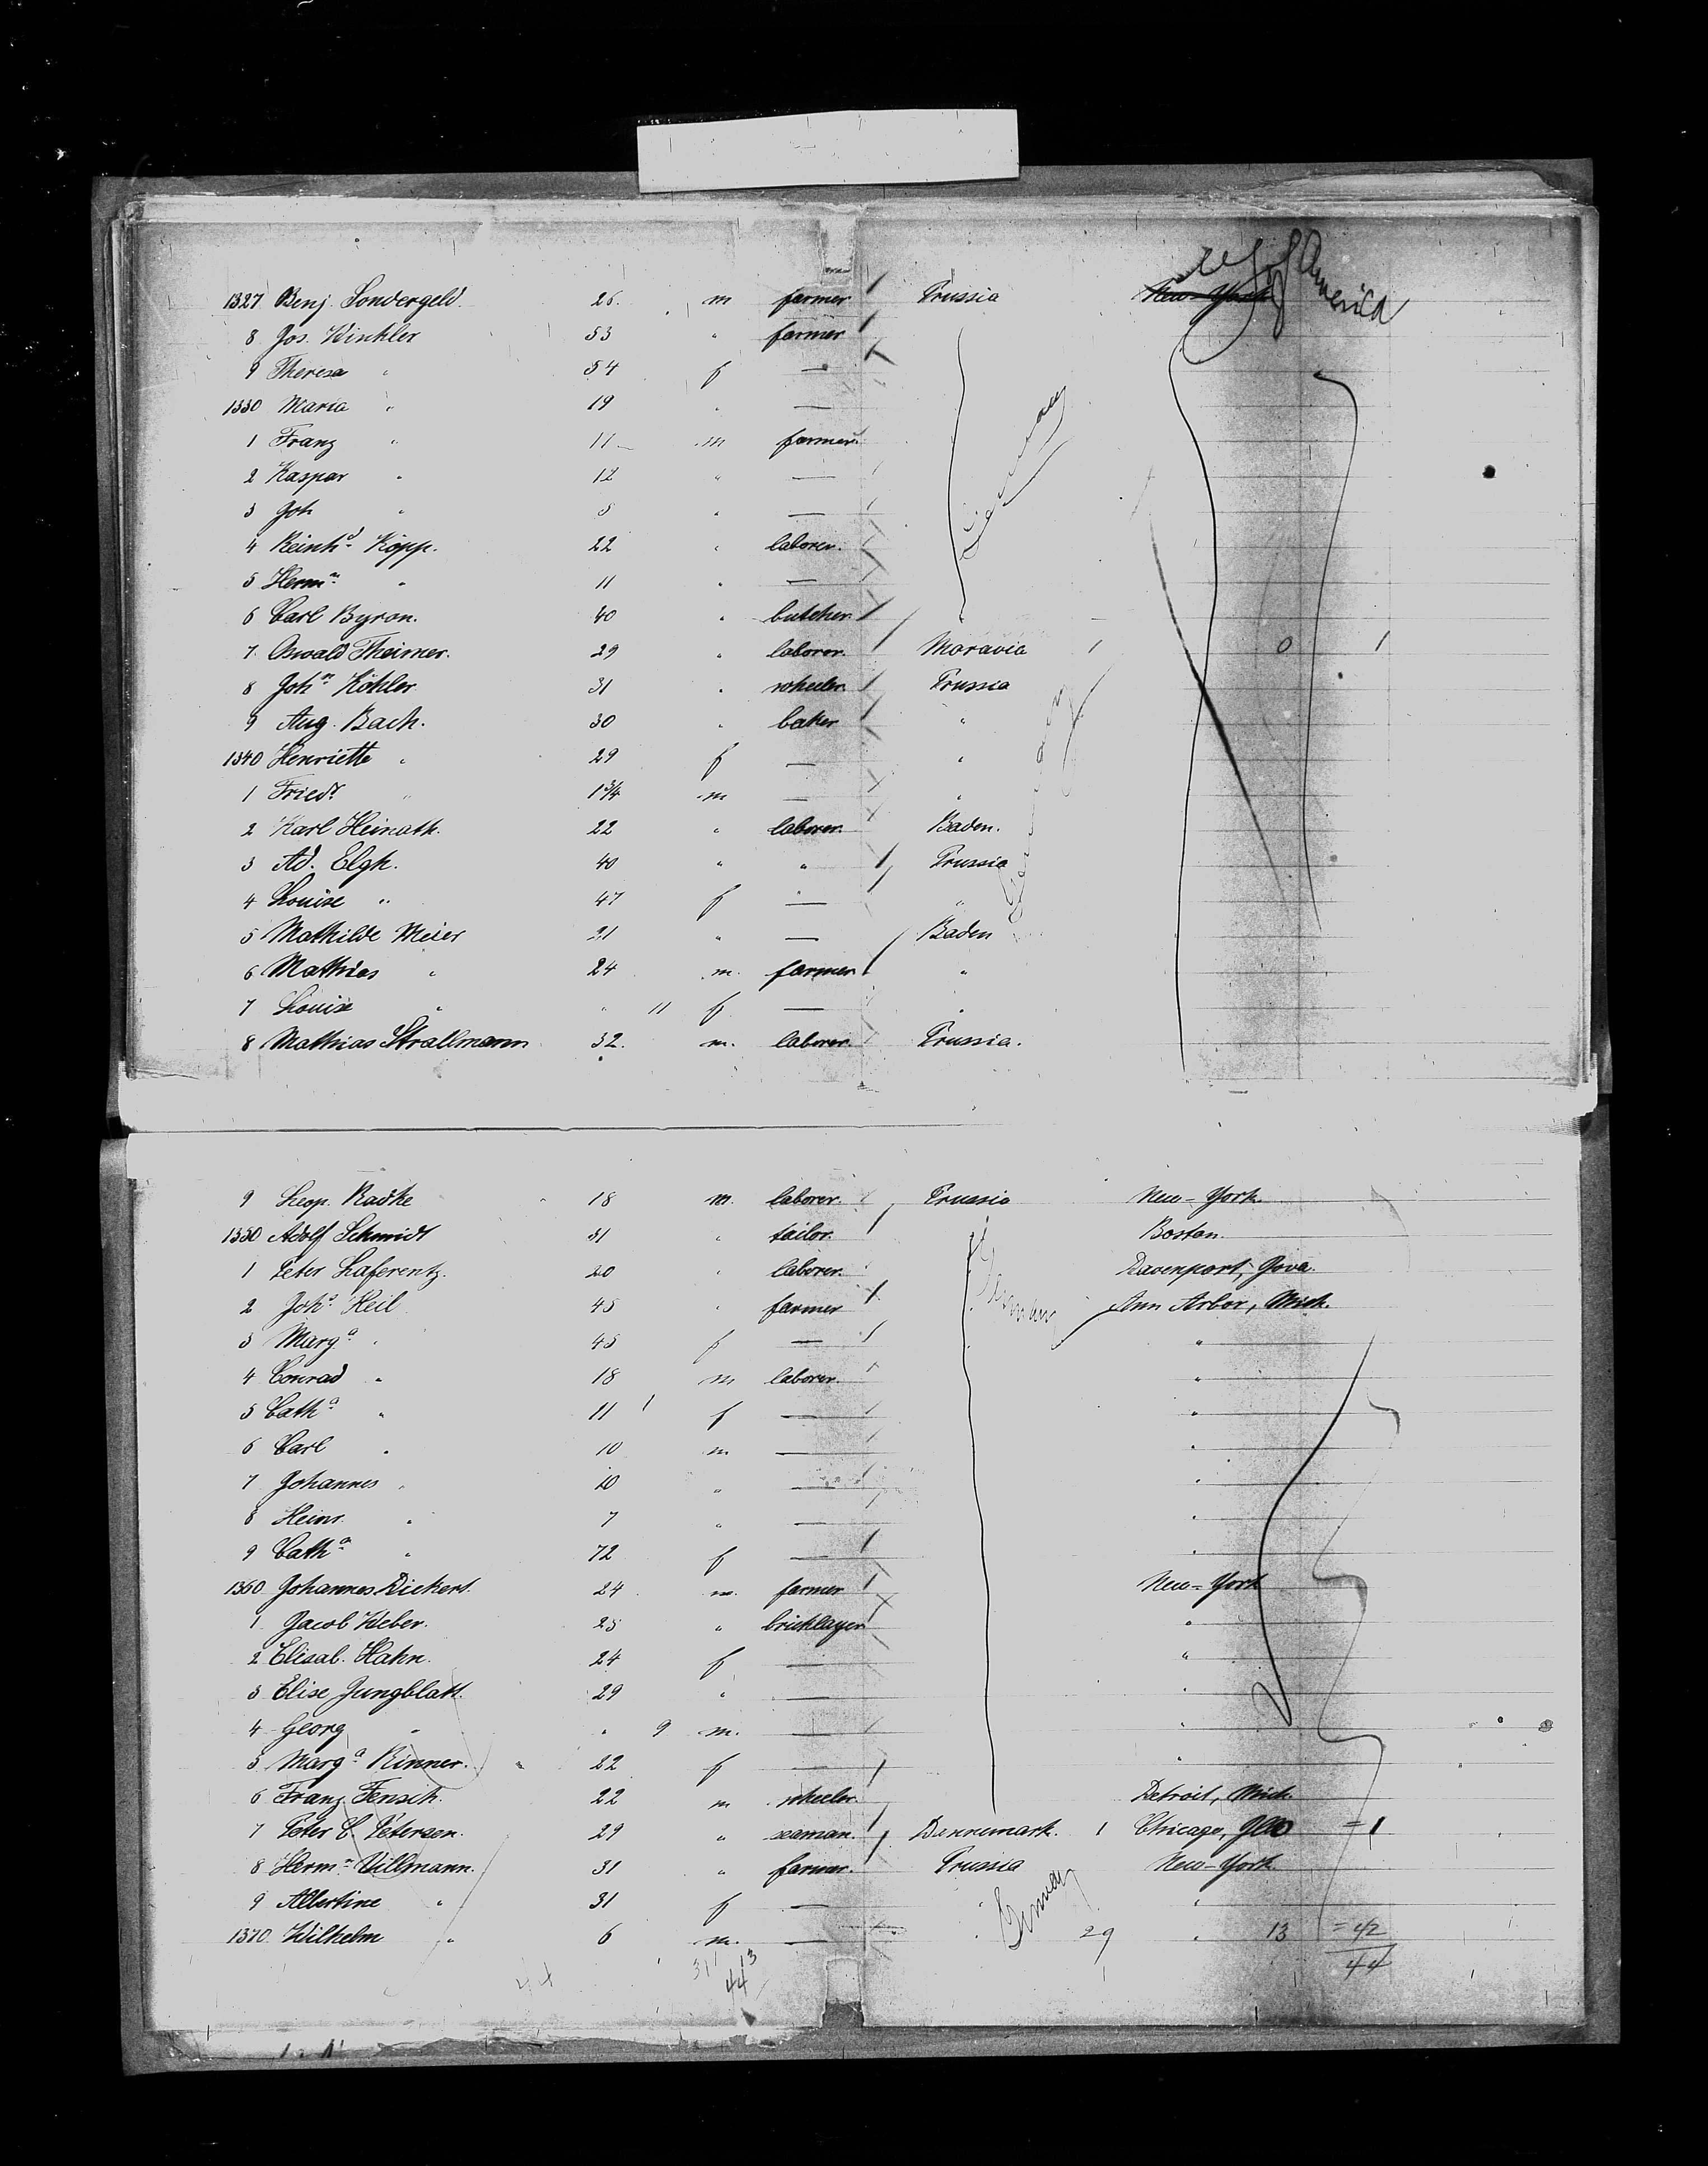 U S of America
1327 Benj. Sondergeld. 26. m farmer Prussia New-York
8 Jos. Winkler 53 " farmer
9 Theresa " 54 f —
1330 Maria " 19 " —
1 Franz " 11 m farmer Germany
2 Kaspar " 12 " —
3 Joh " 8 " —
4 Reinhd Köpp. 22 " laborer.
5 Hermn " 11 " —
6 Carl Byron. 40 " butcher.
7 Oswald Theimer. 29 " laborer. Moravia 1 0 1
8 John Köhler 31 " wheeler. Prussia
9 Aug. Bach. 30 " baker "
1340 Henriette " 29 f — "
1 Friedr " 1 3/4 m — "
2 Karl Heinath. 22 " laborer. Baden.
3 Ad. Elgh. 40 " " Prussia Germany
4 Louise " 47 f — "
5 Mathilde Meier 21 " — Baden
6 Mathias " 24 m. farmer "
7 Louise " " 11 f — "
8 Mathias Strallmann 32. m. laborer. Prussia.
9 Leop. Radke 18 m. laborer. Prussia New-York.
1350 Adolf Schmidt 31 " tailor. Boston.
1 Peter Laferentz. 20 " laborer. Davenport, Jova.
2 Johs Heil 45 " farmer Germany Ann Arbor, Mich.
3 Marga " 45 f — "
4 Conrad " 18 m laborer. "
5 Catha " 11 f — "
6 Carl " 10 m. — "
7 Johannes " 10 " — "
8 Heinr. " 7 " — "
9 Catha " 72 f — "
1360 Johannes Dickert. 24 m. farmer New-York
1 Jacob Weber. 25 " bricklayer "
2 Elisab. Hahn. 24 f — "
3 Elise Jungblatt. 29 " — "
4 Georg " " 9 m. — "
5 Marga Rinner. 22 f — "
6 Franz Fensch. 22 m wheeler. Detroit, Mich.
7 Peter C. Petersen. 29 " seaman. Dannemark. 1 Chicago, Ill = 1
8 Hermn Villmann. 31 " farmer. Prussia New-York
9 Albertine " 31 f — " Germany "
1370 Wilhelm " 6 m. — " 29 " 13 = 42
44 31 13 44
44